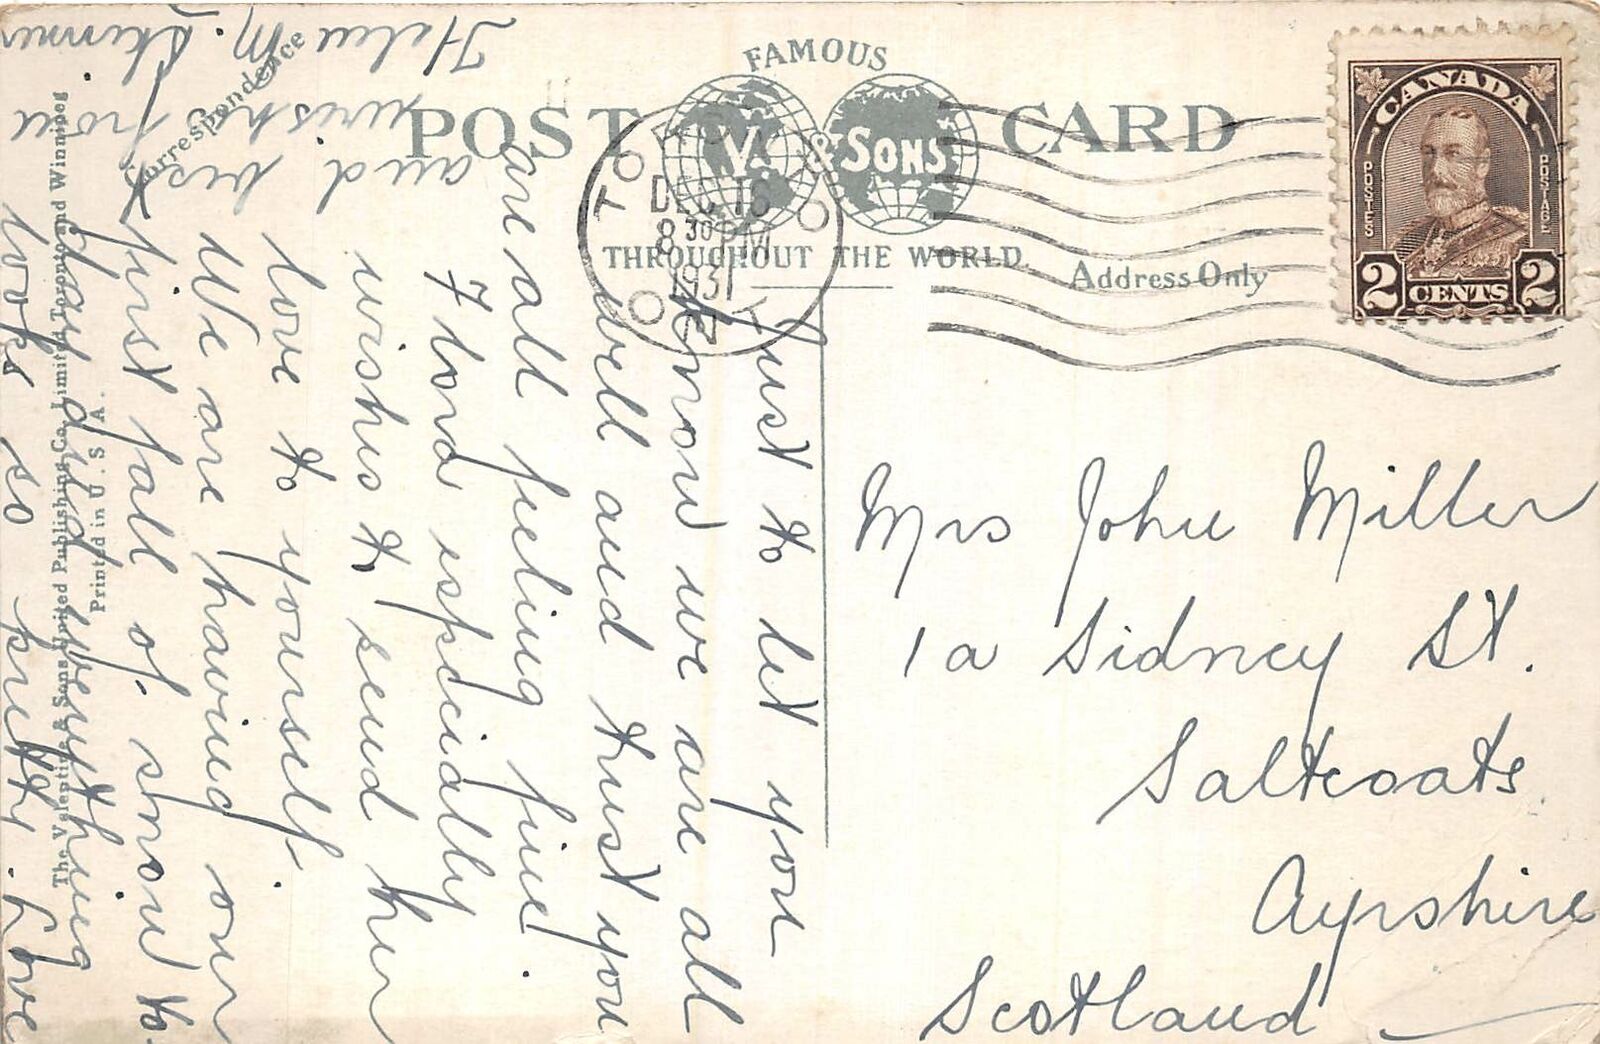 FAMOUS
POST CARD
V. & SONS
THROUGHOUT THE WORLD
Correspondence
Address Only
TORONTO
DEC 16
8 30 PM
1931
ONT
CANADA
POSTES
POSTAGE
2 CENTS 2
Just to let you
know we are all
well and trust you
are all feeling fine.
wishes to send her
love to yourself.
We are having our
first fall of snow to
day and everything
looks so pretty. Love
and best
wishes from
Helen M. Skinner
Mrs John Miller
1a Sidney St.
Saltcoats
Ayrshire
Scotland
The Valentine & Sons United Publishing Co. Limited Toronto and Winnipeg
Printed in U.S.A.